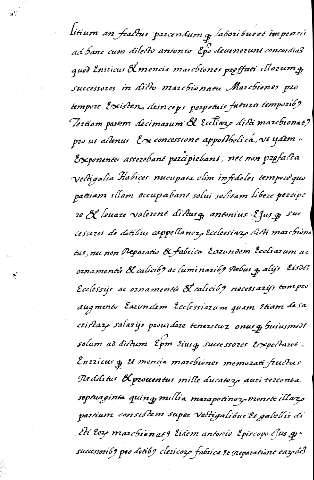 litium an fractus parcendumq laboribus et impensis
ad hanc cum dilecto Antonio Epo devenerunt concordiã
quod Enricus & mencia marchiones prefati illorumq
successores in dicto marchionatu Marchiones pro
tempore Existen. deinceps perpetuis futuris temporibq
Tertiam partem decimarum & Eccliarq dicti marchionatq
pro ut actenus Ex concessione appostholica, ut ydem
Exponentes asserebant percipiebant, nec non prefacta
vectigalia Habices nucupata olim infideles tempore quo
patriam illam occupabant solui solitam libere percipe
re & leuare valerent dictusq antonius Epus suc
cessores de dotibus cappellanorq Ecclesiarq dicti marchiona
tus, nec non Reparatio & fabrica Earundem Eccliarum ac
ornamentis & calicibq ac luminaribq Rebus q alijs Eisdem
Ecclesijs ac ornamentis & calicibq necessarijs tempre
augmento Earundem Ecclesiarum quam Etiam de sa
cristarq salarijs providere teneretur onusq huiusmodi
solum ad dictum Epm Eiusq successores Expectaret.
Enricus q et mencia marchiones memorati fructus
Redditus & proventus mille ducatorq auri tercenta
septuaginta quinq millia marapotinorq monete illarq
partium consisten super vectigalibus et gabellis di
cti Eorq marchionatq Eidem antonio Episcopo Eius q
successoribq pro dotibq clericorq fabrica et Reparatione Earqdẽ